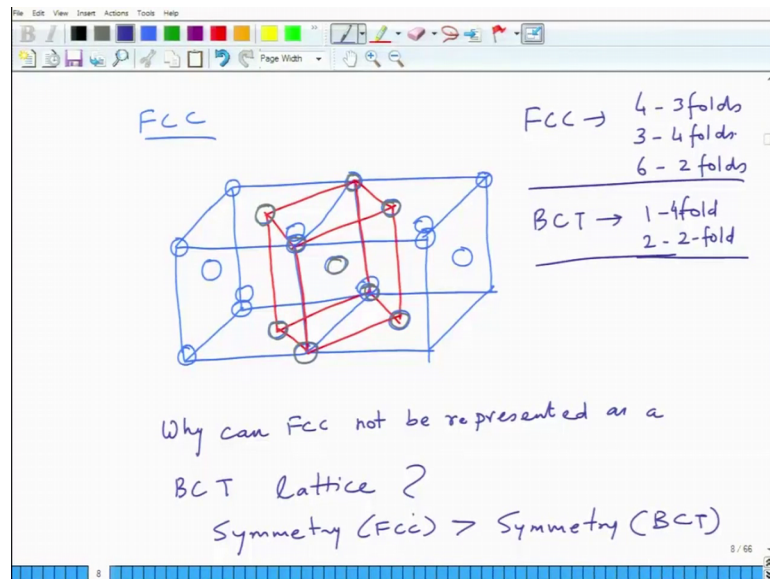 File Edit View Insert Actions Tools Help
B I
Page Width
FCC
FCC → 4 - 3 folds
3 - 4 folds.
6 - 2 folds
BCT → 1 - 4 fold
2 - 2-fold
Why can FCC not be represented as a
BCT lattice ?
Symmetry (FCC) > Symmetry (BCT)
8 / 66
8